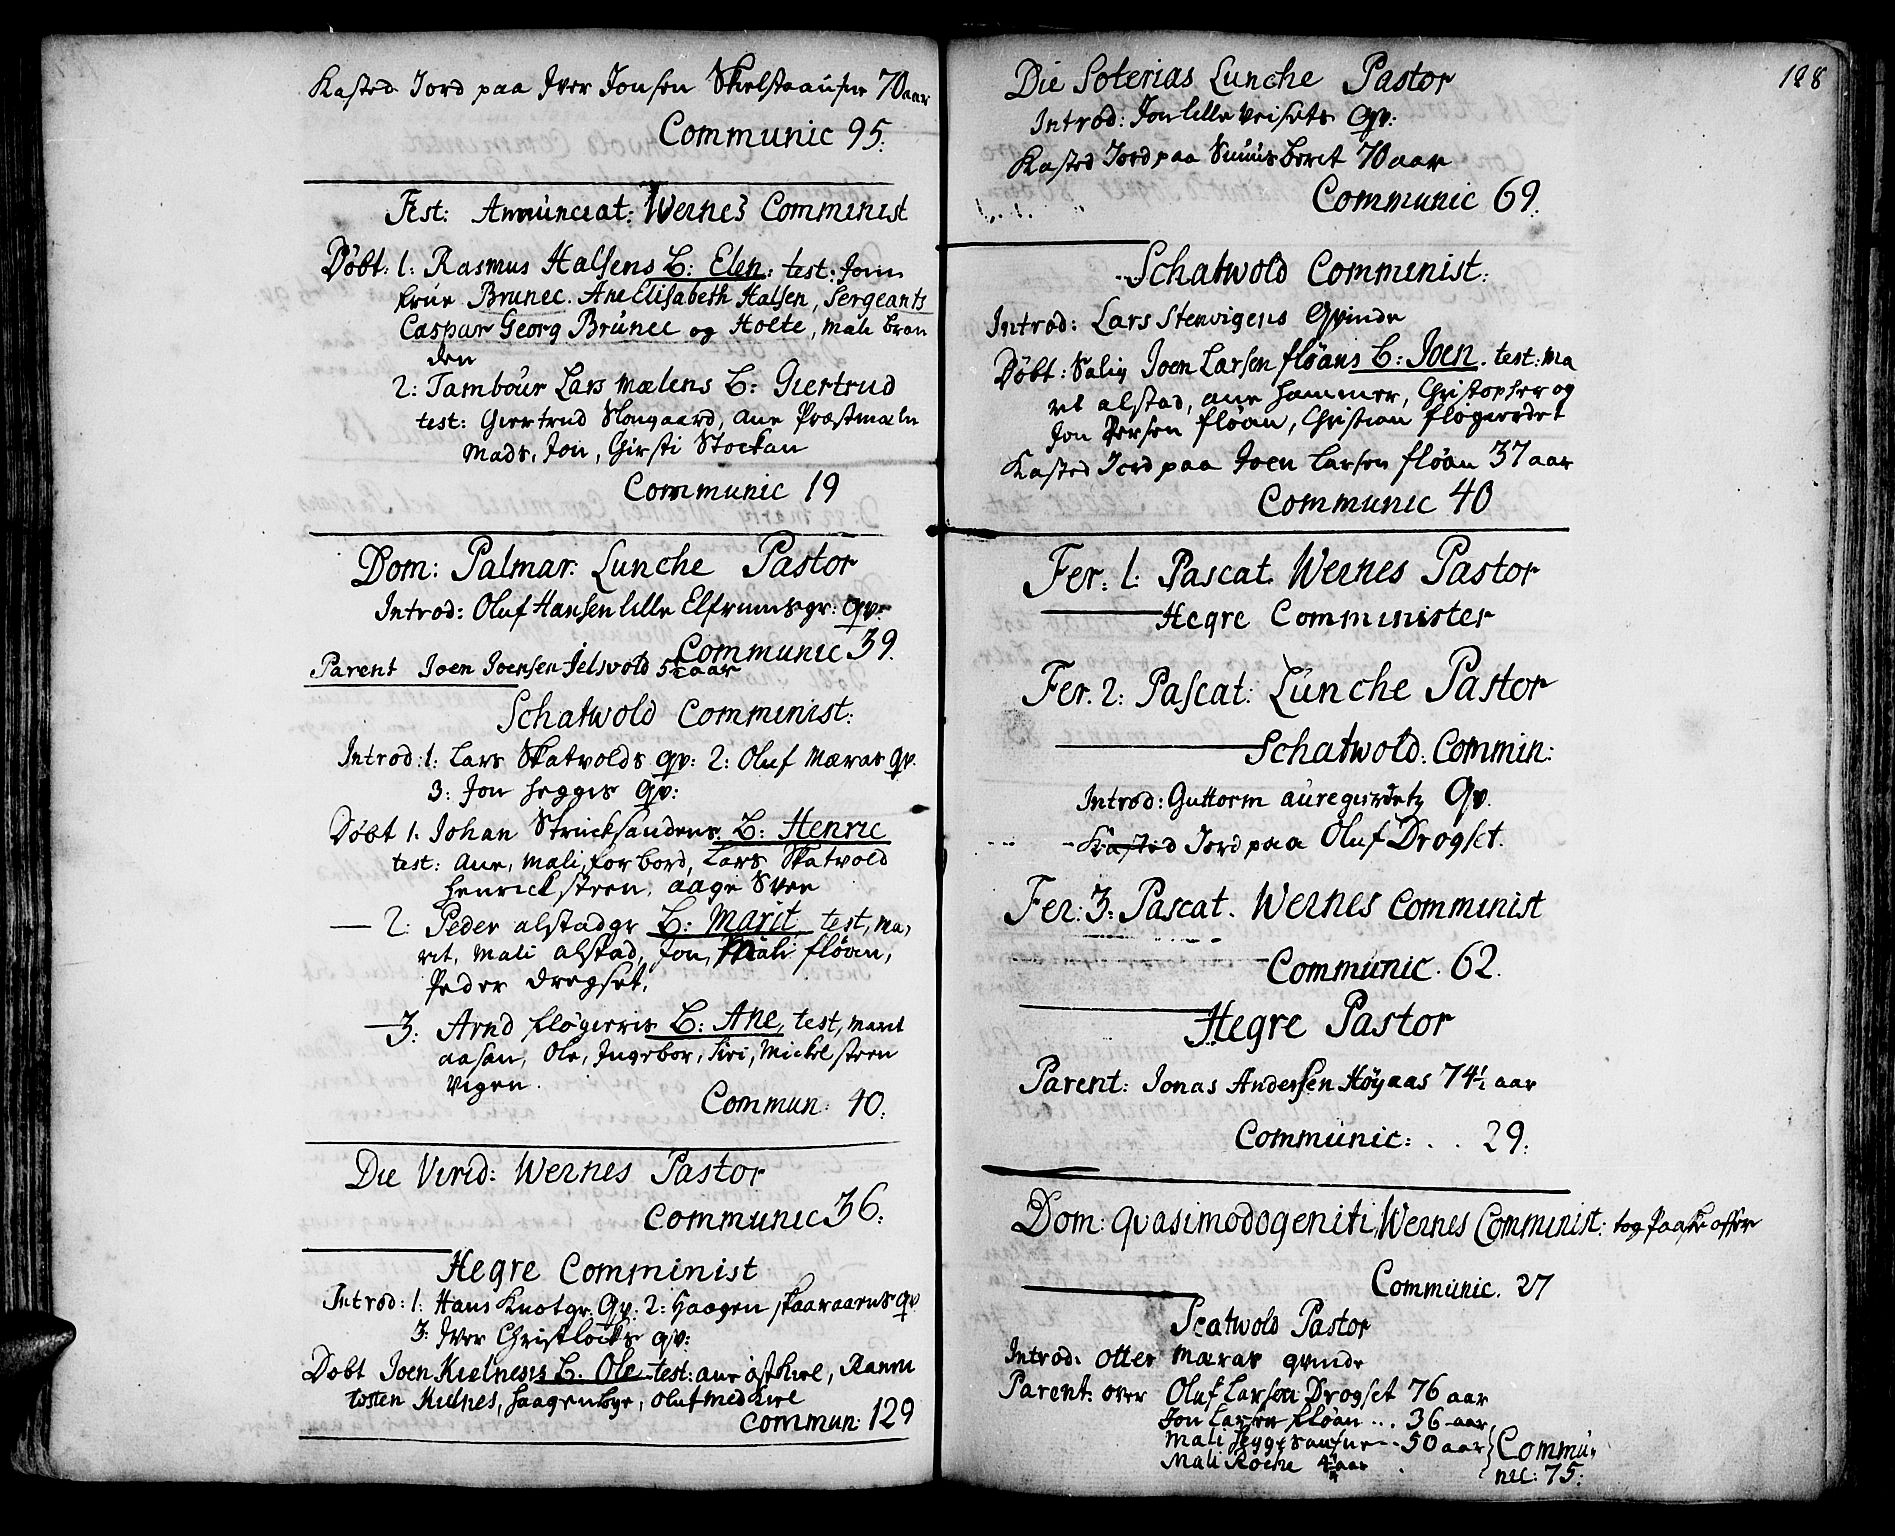 Kasted Jord paa Iver Jonsen Skielstaausne 70 aar
Communic 95.
Fest: Annunciat: Wernes Comminist
Døbt: 1: Rasmus Halsens B: Elen: test: Jom
frue Brunec. Ane Elisabeth Halsen, Sergeants
Caspar Georg Brunec og Holte, Mali Bran
den
2: Tambour Lars Mælens B: Giertrud
test: Giertrud Slougaard, Ane Præstmæln
Mads, Jon, Girsti Stockan
Communic 19
Dom: Palmar: Lunche Pastor
Introd: Oluf Hansen lille Elfrumsgr: qv:
Communic 39.
Parent Joen Joensen Jelsvold aar
Schatwold Comminist:
Introd: 1: Lars Skatvolds qv: 2: Oluf Mæras qv.
3: Jon Hegges qv:
Døbt 1. Johan Strucksandens B: Henric
test: Ane, Mali, Forbord, Lars Skatvold
Henrick steen, Aage Sven
— 2: Peder alstadgr B: Marit test, Ma,
rit, Mali alstad, Jon, Mali fløan,
Peder Dregset.
— 3: Arnd fløgierris B: Ane, test, Marit
aasan, Ole, Ingebor, Siri, Mickel steen
vigen.
Commun: 40:
Die Virid: Wernes Pastor
Communic 36:
Hegre Comminist
Introd: 1: Hans Knotgr. Qv. 2: Haagen skaaraarns qv
3: Iver Christlocks qv:
Døbt Joen Kielneses B. Ole test: Ane østkiel, Rannu
tosten Kielnes, Haagenbye, Oluf Medkiel
Commun: 129
128
Die Soterias Lunche Pastor
Introd: Jon lille Veisets Qv:
Kasted Jord paa Beret 70 aar
Communic 69.
Schatwold Comminist:
Introd: Lars Stenvigens Qvinde
Døbt: Salig Joen Larsen fløans B: Joen. test: Ma
rit alstad, ane Hammer, Christopher og
Jon Persen fløan, Christian fløgierdet
Kasted Jord paa Joen Larsen fløan 37 aar
Communic 40
Fer: 1: Pascat. Wernes Pastor
Hegre Comminister
Fer. 2: Pascat: Lunche Pastor
Schatwold. Commin:
Introd: Guttorm auregierdetz Qv.
Kasted Jord paa Oluf Drogset.
Fer: 3: Pascat. Wernes Comminist
Communic. 62.
Hegre Pastor
Parent: Jonas Andersen Høyaas 74½ aar
Communic: . . 29:
Dom: Quasimodogeniti, Wernes Comminist: tog Paaske offer
Communic. 27
Scatwold Pastor
Introd: Otter Mæras qvinde
Parent: over Oluf Larsen Drogset 76 aar
Jon Larsen fløan . . . 36 aar
Mali Heggesausne - - 50 aar
Mali Roche aar
Commu,
nic: 75: